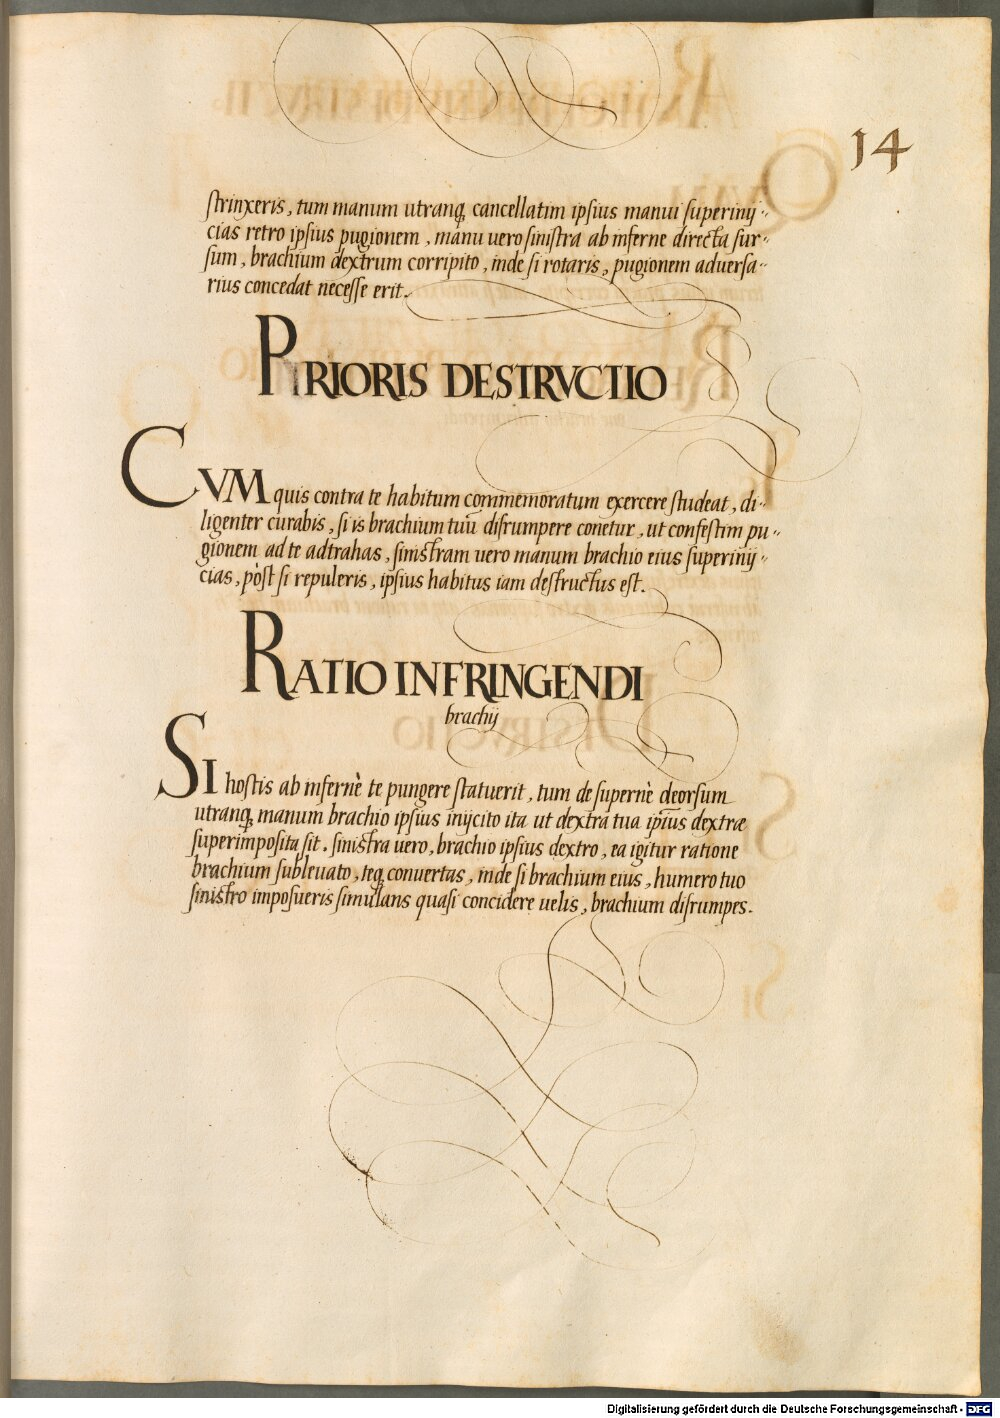 14
strinxeris, tum manum utranq, cancellatim ipsius manui superinij-
cias retro ipsius pugionem, manu uero sinistra ab inferne directa sur-
sum, brachium dextrum corripito, inde si rotaris, pugionem aduersa-
rius concedat necesse erit.
PRIORIS DESTRVCTIO
CVM quis contra te habitum commemoratum exercere studeat, di-
ligenter curabis, si is brachium tuũ disrumpere conetur, ut confestim pu-
gionem ad te adtrahas, sinistram uero manum brachio eius superinij-
cias, pòst si repuleris, ipsius habitus iam destructus est.
RATIO INFRINGENDI
brachij
SI hostis ab infernè te pungere statuerit, tum de supernè deorsum
utranq, manum brachio ipsius inijcito ita ut dextra tua ip̃ius dextræ
superimposita sit. sinistra uero, brachio ipsius dextro, ea igitur ratione
brachium subleuato, teq, conuertas, inde si brachium eius, humero tuo
sinistro imposueris simulans quasi concidere uelis, brachium disrumpes.
Digitalisierung gefördert durch die Deutsche Forschungsgemeinschaft - DFG